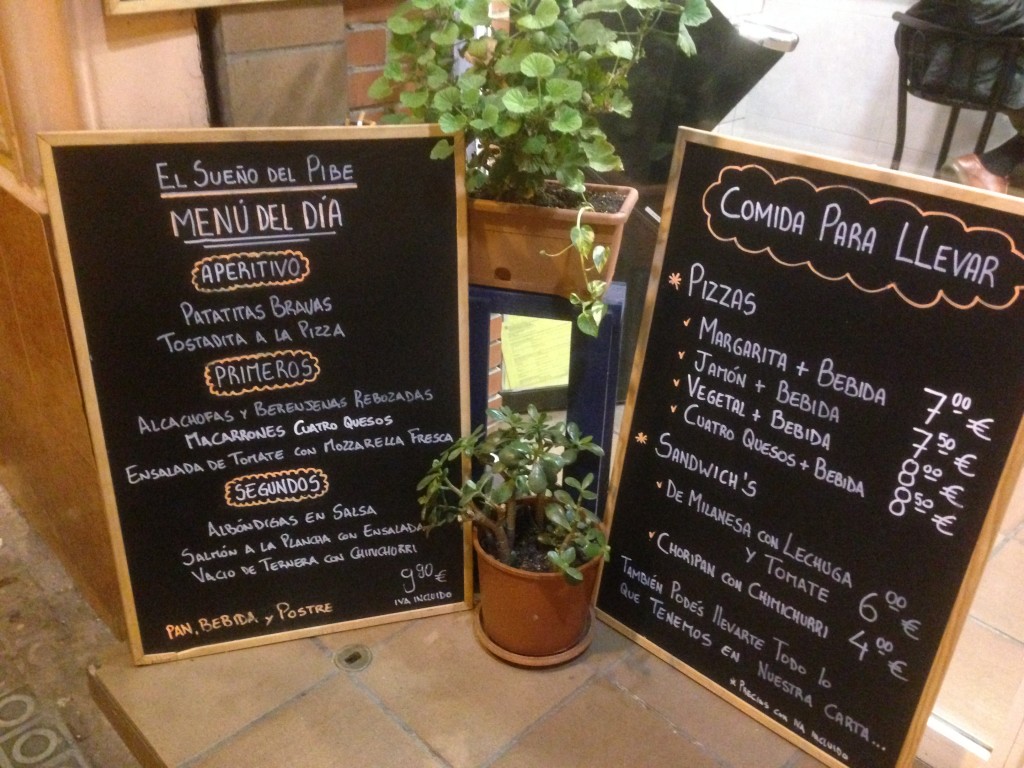 EL SUEÑO DEL PIBE
MENÚ DEL DÍA
APERITIVO
PATATITAS BRAVAS
TOSTADITA A LA PIZZA
PRIMEROS
ALCACHOFAS Y BERENJENAS REBOZADAS
MACARRONES CUATRO QUESOS
ENSALADA DE TOMATE CON MOZZARELLA FRESCA
SEGUNDOS
ALBÓNDIGAS EN SALSA
SALMÓN A LA PLANCHA CON ENSALADA
VACIO DE TERNERA CON CHIMICHURRI
9,90 €
IVA INCLUIDO
PAN, BEBIDA Y POSTRE
COMIDA PARA LLEVAR
* PIZZAS
✓ MARGARITA + BEBIDA 7,00 €
✓ JAMÓN + BEBIDA 7,50 €
✓ VEGETAL + BEBIDA 8,00 €
✓ CUATRO QUESOS + BEBIDA 8,50 €
* SANDWICH'S
✓ DE MILANESA CON LECHUGA
Y TOMATE 6,00 €
✓ CHORIPAN CON CHIMICHURRI 4,00 €
TAMBIÉN PODÉS LLEVARTE TODO LO
QUE TENEMOS EN NUESTRA CARTA...
* PRECIOS CON IVA INCLUIDO